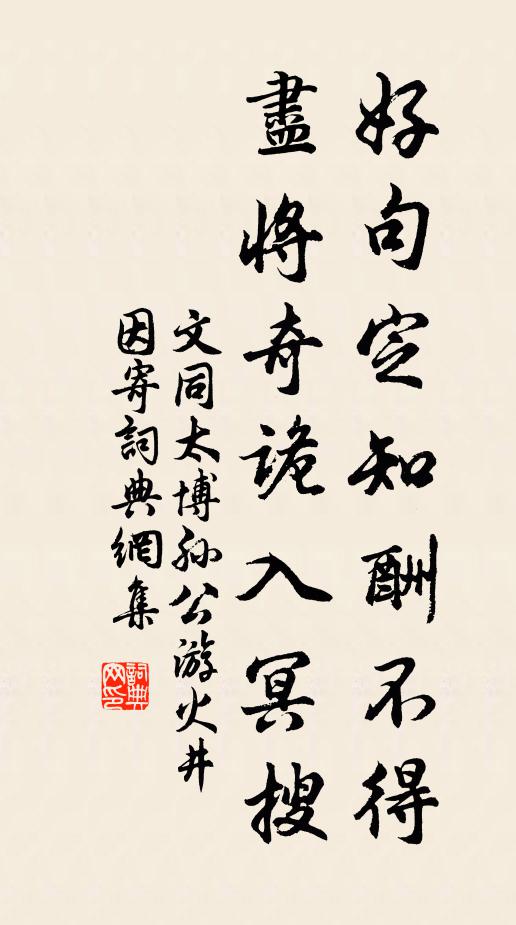 好句定知酬不得
盡將奇詭入冥搜
文同太博孙公游火井
因寄詞典網集
詞典網印